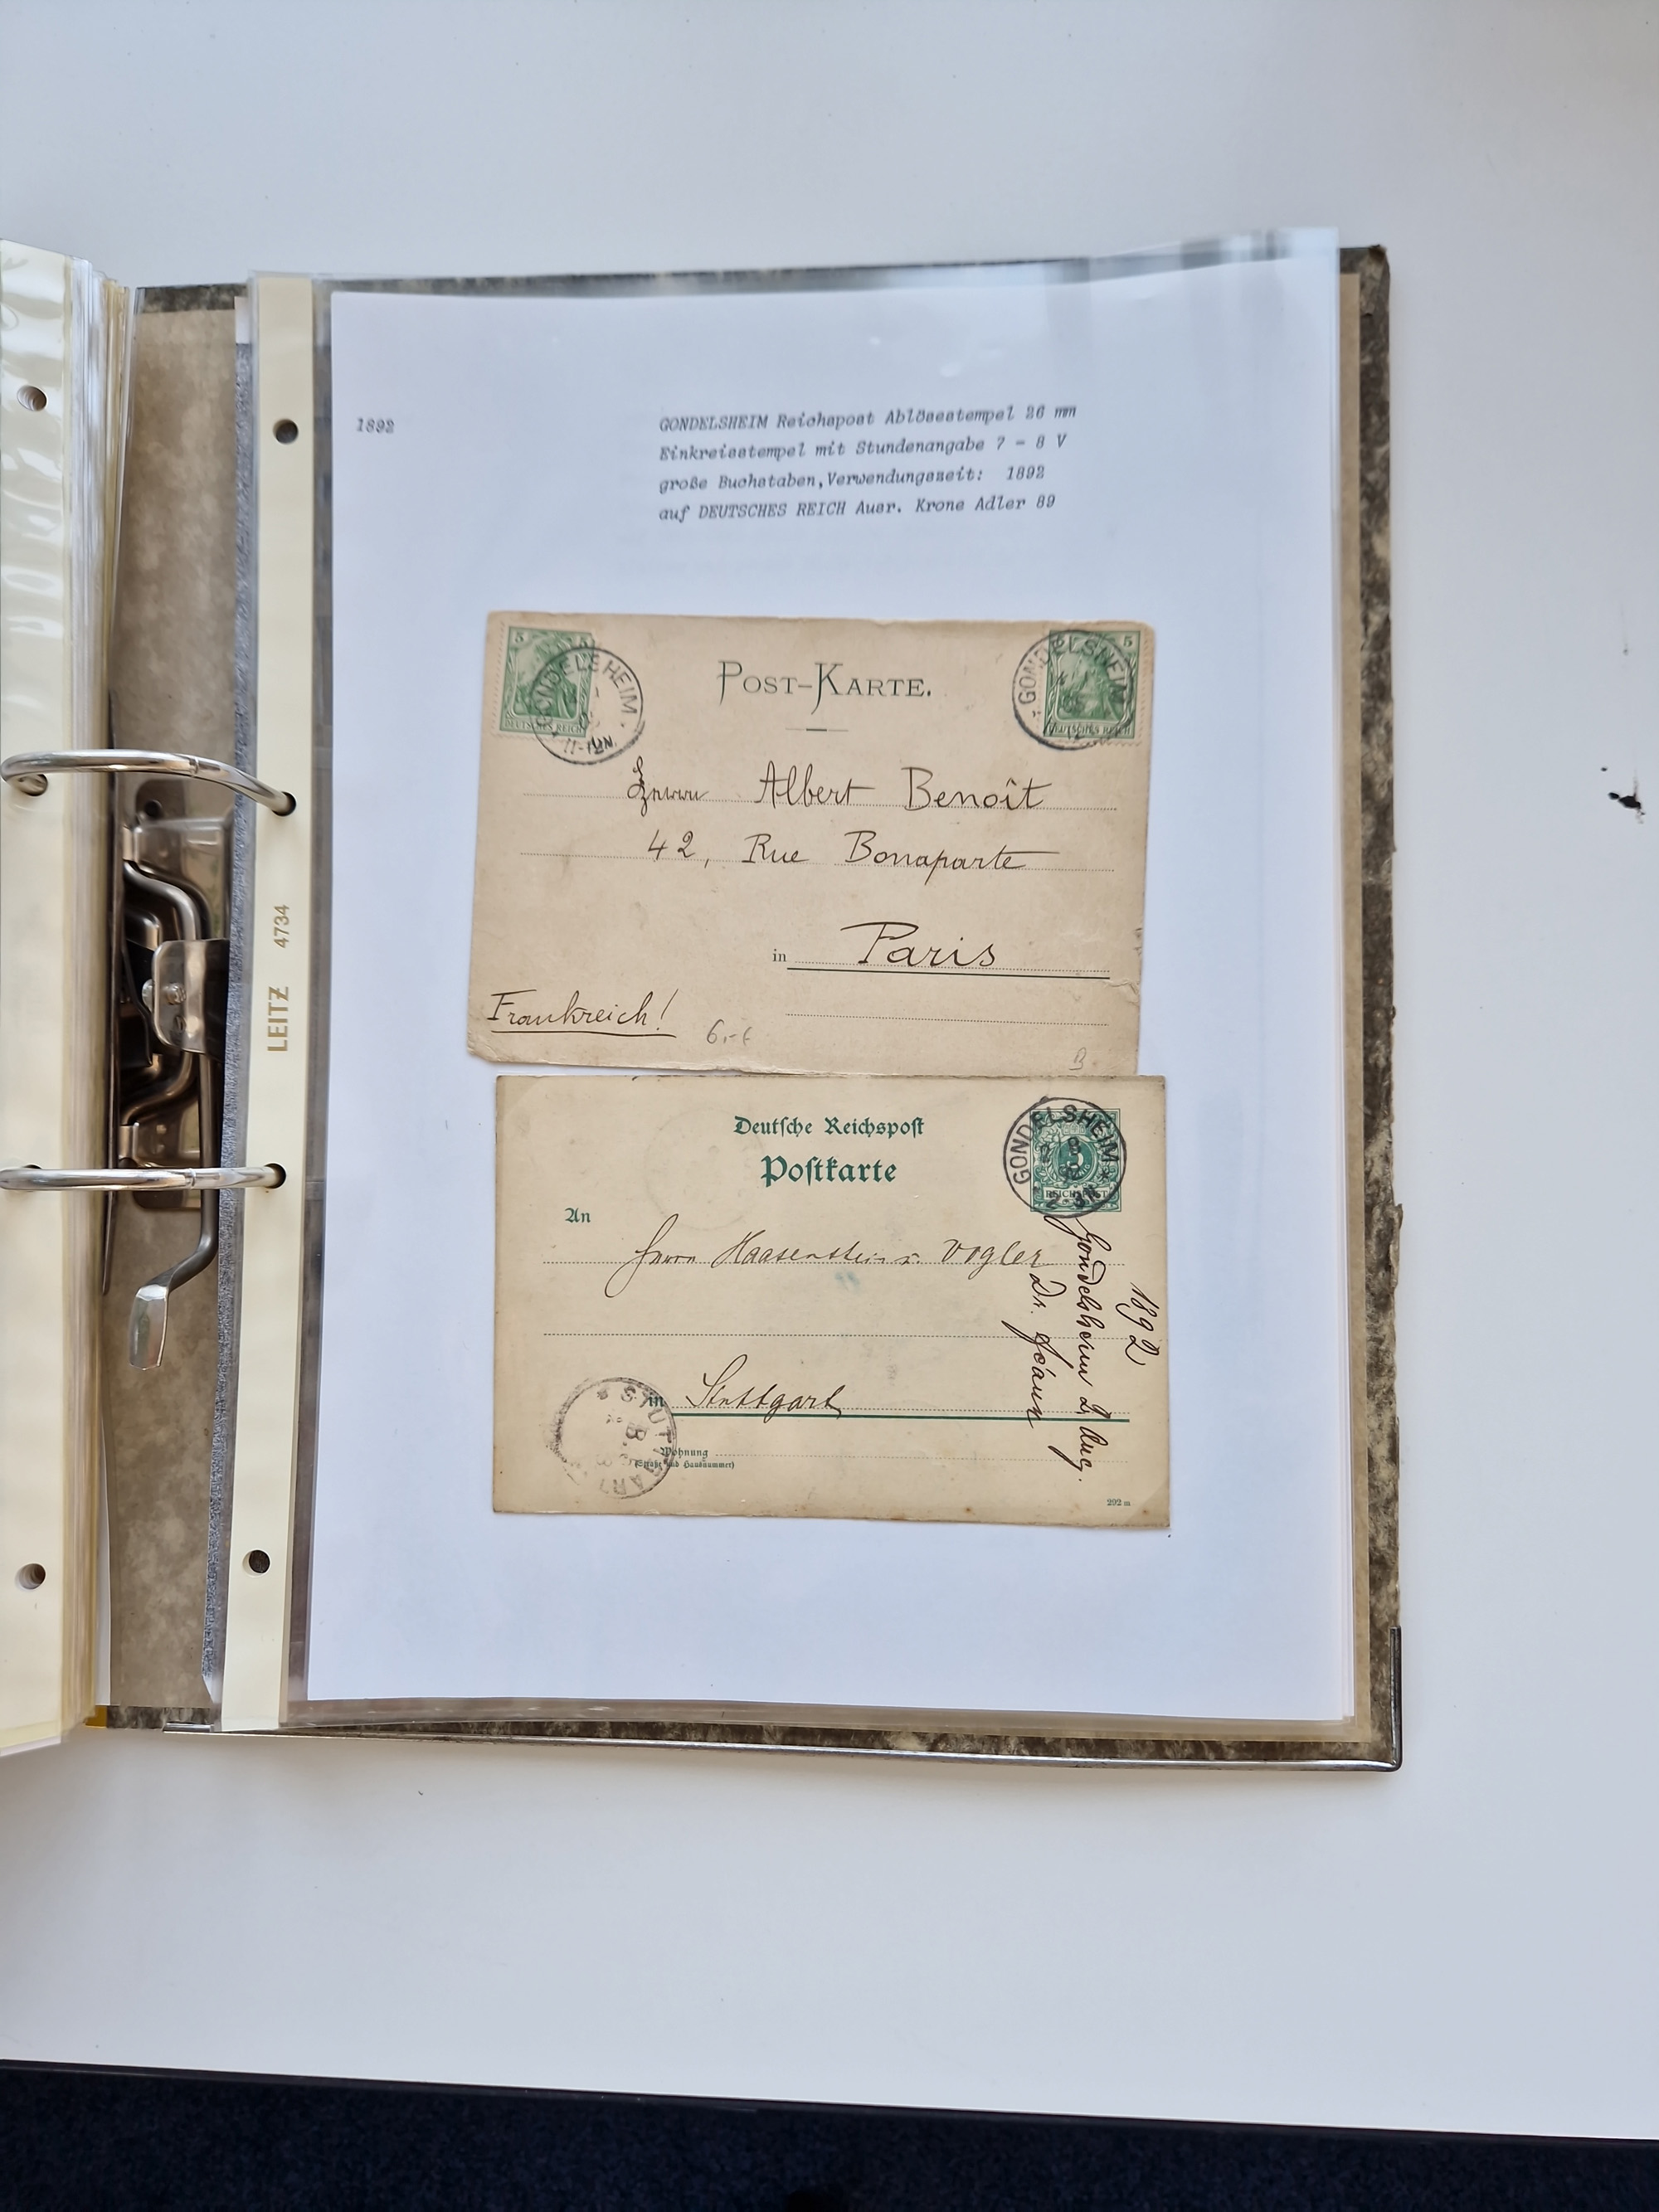 1892
GONDELSHEIM Reichspost Ablösestempel 26 mm
Einkreisstempel mit Stundenangabe 7 - 8 V
große Buchstaben, Verwendungszeit: 1892
auf DEUTSCHES REICH Ausr. Krone Adler 89
5
DEUTSCHES REICH
GONDELSHEIM
11-12N.
POST-KARTE.
5
DEUTSCHES REICH
GONDELSHEIM
Herrn Albert Benoît
42, Rue Bonaparte
in Paris
Frankreich!
6,-
B
Deutsche Reichspost
Postkarte
GONDELSHEIM
REICHSPOST
An
Herrn Haasenstein u. Vogler
in Stuttgart
Wohnung
(Straße und Hausnummer)
STUTTGART
1892
Gondelsheim 2 Aug.
Dr.
292 m
LEITZ 4734